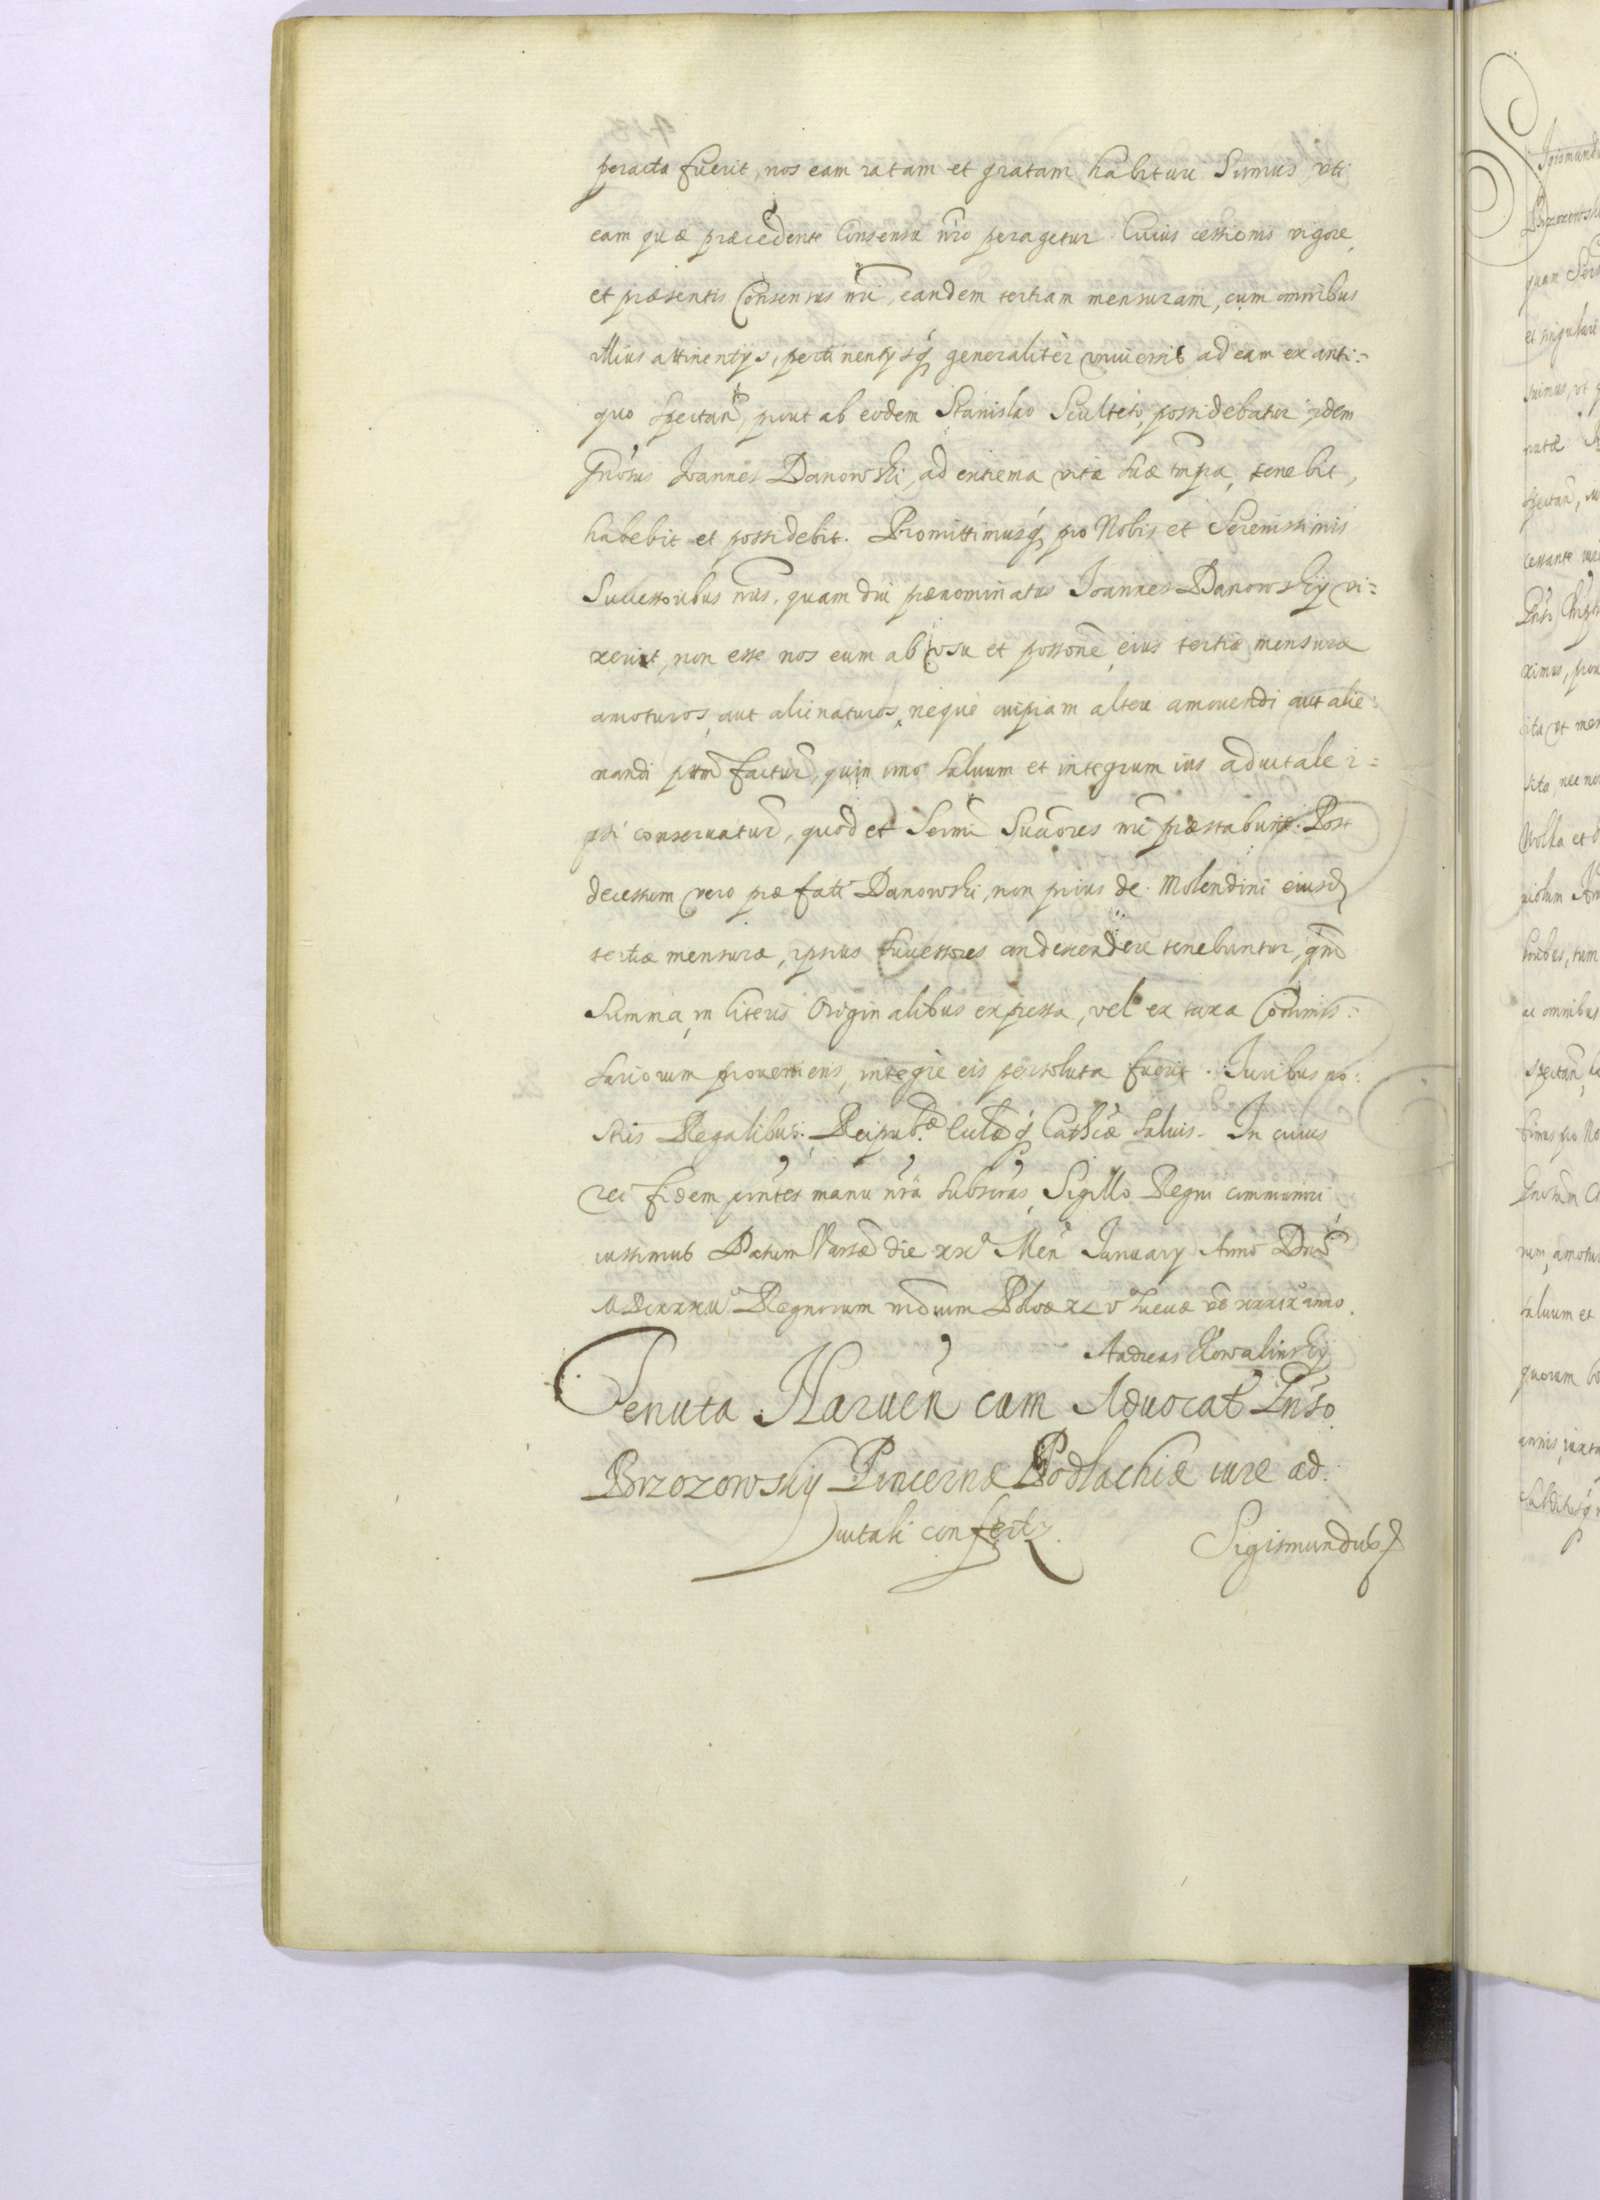 peracta fuerit, nos eam ratam et gratam habituri Sumus uti
eam quæ præcedente Consensu nro peragetur. Cuius cessionis vigore,
et præsentis Consensus nri, eandem tertiam mensuram, cum omnibus
illius attinentys, pertinentysq generaliter universis ad eam ex anti=
quo spectan, prout ab eodem Stanislao Sculteto, possidebatur idem
Gnosus Joannes Danowski, ad extrema vitæ suæ tmpa, tenebit,
habebit et possidebit. Promittimusq pro Nobis et Serenissimis
Successoribus nris, quam diu prænominatus Joannes Danowskij vi=
xerit, non esse nos eum ab usu et possone eius tertiæ mensuræ
amoturos, aut alienaturos, neque cuipiam alteri amovendi aut alie=
nandi ptm factur, quin imo salvum et integrum ius advitale i=
psi conservatur, quod et Sermi Succores nri præstabunt. Post
decessum vero præfati Danowski, non prius de Molendini eiusd
tertiæ mensuræ, ipsius successores condescendere tenebuntur, qm
Summa, in literis Originalibus expressa, vel ex taxa Commis=
sariorum proveniens, integre eis persoluta fuerit. Juribus no=
stris Regalibus, Reipub. Eccl q Cathcæ salvis. In cuius
rei fidem pntes manu nra subscras, Sigillo Regni communiri
iussimus Datum Varsæ die xx Men January Anno Dni
MDCXXXII Regnorum nrorum Pol XLV Sueciæ vo xxxix anno.
Andreas Kowalinskij
Tenuta Narven cum Advocat Gnso
Brzozowskij Pincernæ Podlachiæ iure ad
vitali confertur
Sigismundus